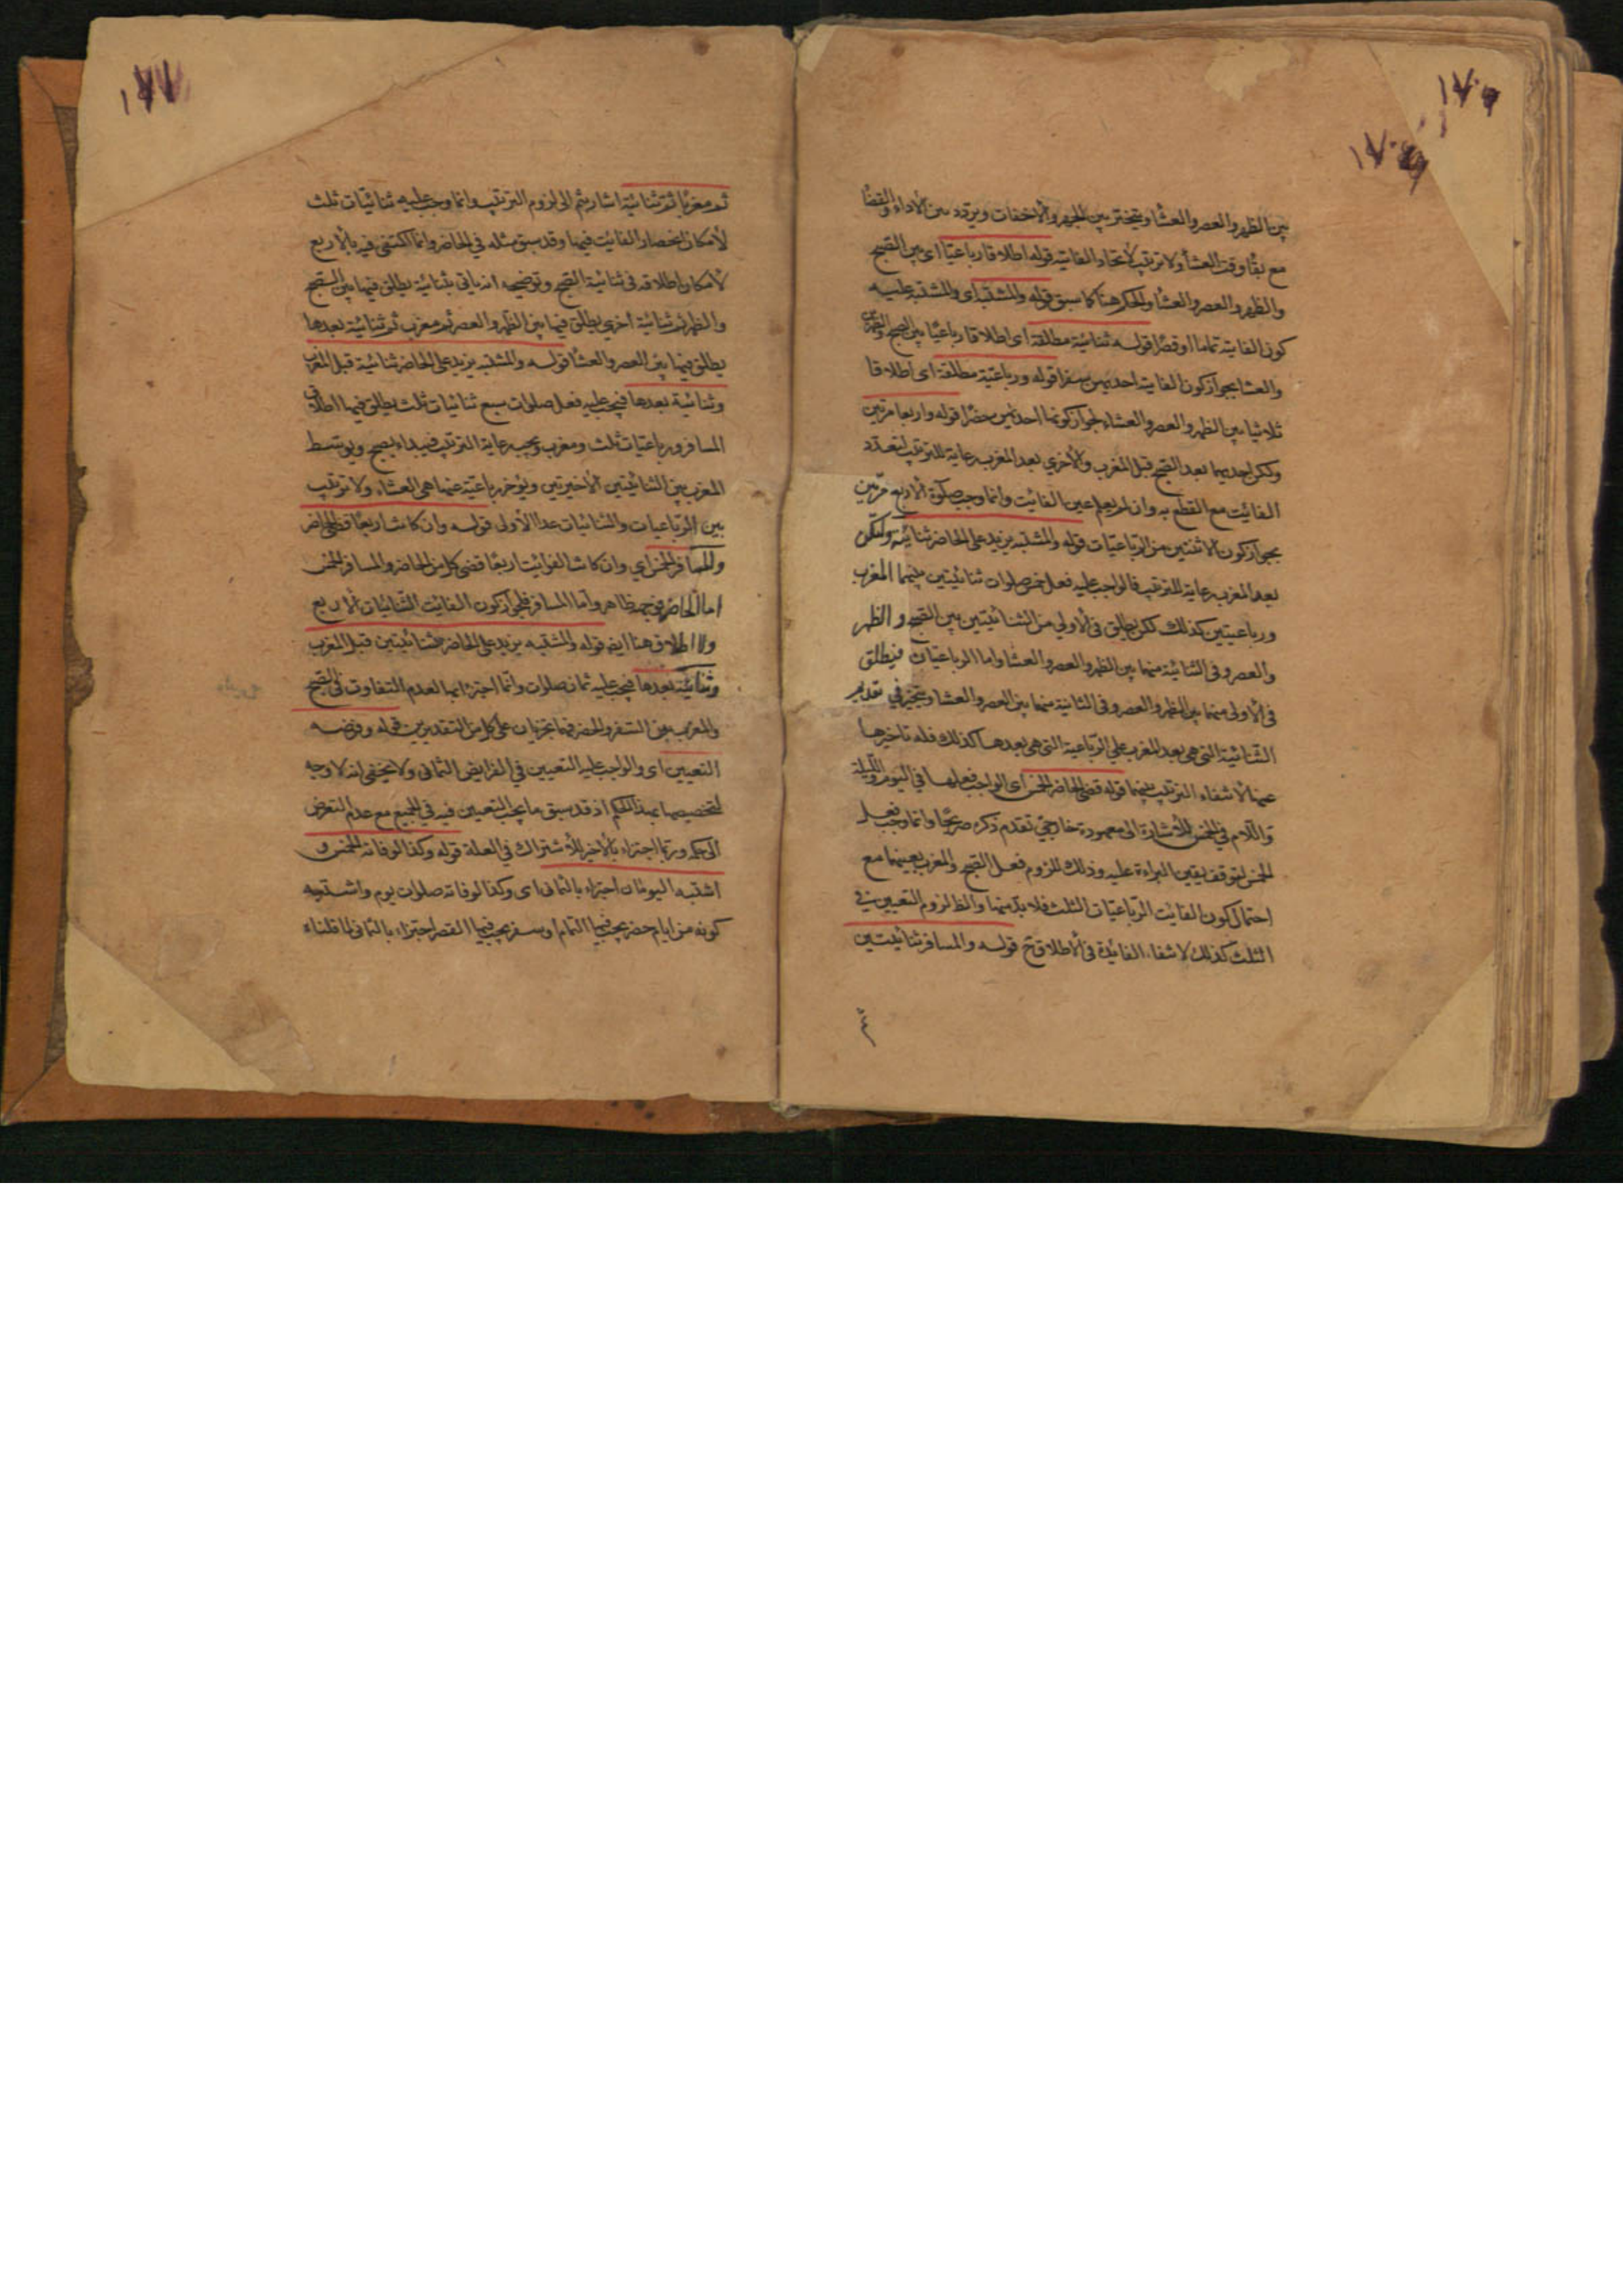 بين الظهر والعصر والعشا ويتخير بين الجهر والاخفات ويردد بين الاداء والقضا
مع بقا وقت العشا ولا ترتيب لاتحاد الفايته قوله اطلاقا رباعيا اى بين الصبح
والظهر والعصر والعشا والحكم هنا كما سبق قوله والمشتبه اى والمشتبه عليه
كون الفايته تماما او قصرا قوله ثنائية مطلقة اى اطلاقا رباعيا بين الصبح والظهرين
والعشا بجواز كون الفايته احديهن سفرا قوله ورباعية مطلقة اى اطلاقا
ثلاثيا بين الظهر والعصر والعشاء لجواز كونها احديهن حضرا قوله واربعا مرتين
ولكن احديهما بعد الصبح قبل المغرب والاخرى بعد المغرب رعاية للترتيب لتعدد
الفائيت مع القطع به وان لم يعلم عين الفائيت وانما وجب صلوة الاربع مرتين
بجواز كون الاثنتين من الرباعيات قوله والمشتبه يزيد على الحاضر ثنائية ولتكن
بعد المغرب رعاية للترتيب فالواجب عليه فعل خمس صلوات ثنائيتين بينهما المغرب
ورباعيتين كذلك لكن يطلق فى الاولى من الثنائيتين بين الصبح والظهر
والعصر وفى الثانية منهما بين الظهر والعصر والعشا واما الرباعيات فيطلق
فى الاولى منهما بين الظهر والعصر وفى الثانية منهما بين العصر والعشا ويتخير في تقديم
الثنائية التى هى بعد المغرب على الرباعية التى هى بعدها كذلك فله تاخيرها
عنها لانتفاء الترتيب بينهما قوله قضى الحاضر الخمس اى الواجب فعلها فى اليوم والليلة
واللام في الخمس للاشارة الى معهود خارجي تقدم ذكره صريحا وانما وجب فعل
الخمس لتوقف يقين البراءة عليه وذلك للزوم فعل الصبح والمغرب بعينهما مع
احتمال كون الفائيت الرباعيات الثلث فلا بد منها والظ لزوم التعيين في
الثلث كذلك لانتفاء الفائدة فى الاطلاق ح قوله والمسافر ثنائيتين
ثم مغربا ثم ثنائية اشار بثم الى لزوم الترتيب وانما وجب عليه ثنائيات ثلث
لامكان انحصار الفائيت فيها وقد سبق مثله في الحاضر وانما اكتفى فيه بالاربع
لامكان اطلاقه فى ثنائية الصبح وتوضيحه انه ياتى بثنائية يطلق فيها بين الصبح
والظهر ثم ثنائية اخرى يطلق فيها بين الظهر والعصر ثم مغرب ثم ثنائية بعدها
يطلق فيها بين العصر والعشا قوله والمشتبه يزيد على الحاضر ثنائية قبل المغرب
وثنائية بعدها فيجب عليه فعل صلوات سبع ثنائيات ثلث يطلق فيها اطلاق
المسافر ورباعيات ثلث ومغرب ويجب رعاية الترتيب فيبداء بصبح ويوسط
المغرب بين الثنائيتين الاخيرتين ويؤخر رباعية عنها هى العشاء ولا ترتيب
بين الرباعيات والثنائيات عدا الاولى قوله وان كانت اربعا قضى الحاضر
والمسافر الخمس اي وان كانت الفوائيت اربعا قضى كل من الحاضر والمسافر الخمس
اما الحاضر فوجهه ظاهر واما المسافر فلجواز كون الفائيت الثنائيات الاربع
ولا اطلاق هنا ايضه قوله والمشتبه يزيد على الحاضر ثنائيتين قبل المغرب
وثنائية بعدها فيجب عليه ثمان صلوات وانما اجتزئ بها لعدم التفاوت فى الصبح
والمغرب بين السفر والحضر فهما تجزيان على كل من التقديرين قوله وفرضه
التعيين اى والواجب عليه التعيين في الفرايض الثمانى ولا يخفى انه لا وجه
لتخصيصها بهذا الحكم اذ قد سبق ما يجب التعيين فيه في الجميع مع عدم التعرض
الى حكمه وربما اجتزاء بالاخير للاشتراك فى العلة قوله وكذا لو فاته الخمس و
اشتبه اليومان اجتزاء بالثمانى اى وكذا لو فاته صلوات يوم واشتبه
كونه من ايام حضر يجب فيها التمام او سفر يجب فيها القصر اجتزاء بالثمانى لما قلناه